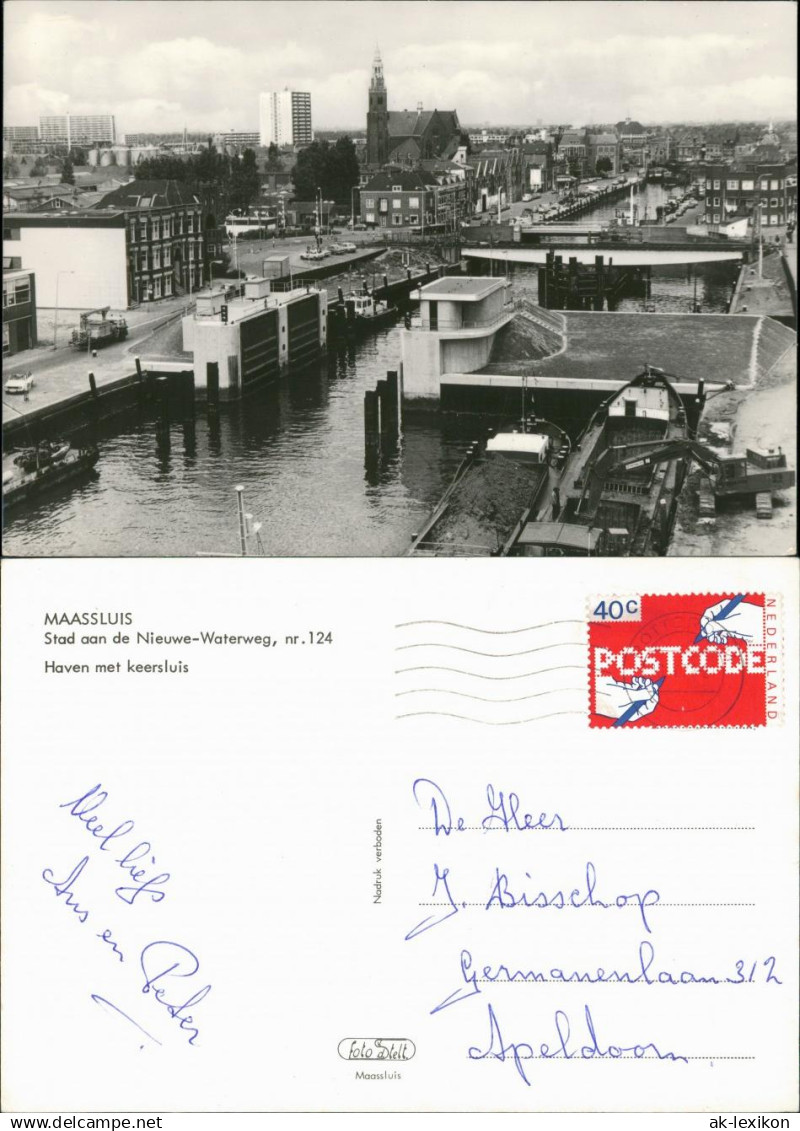 MAASSLUIS
Stad aan de Nieuwe-Waterweg, nr.124
Haven met keersluis
40c
POSTCODE
NEDERLAND
Veel liefs
Ans en Peter
Nadruk verboden
De Heer
J. Bisschop
Germanenlaan 312
Apeldoorn
foto Stelt
Maassluis
delcampe.net
ak-lexikon